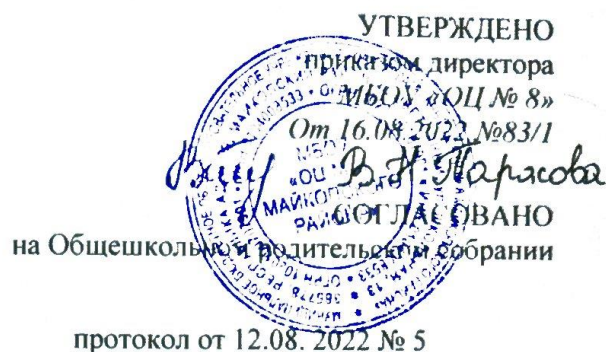 УТВЕРЖДЕНО
приказом директора
МБОУ «ОЦ № 8»
От 16.08.2022 №83/1
МБОУ
«ОЦ
МАЙКОПСКОГО
РАЙОНА
СОГЛАСОВАНО
на Общешкольном родительском собрании
протокол от 12.08. 2022 № 5